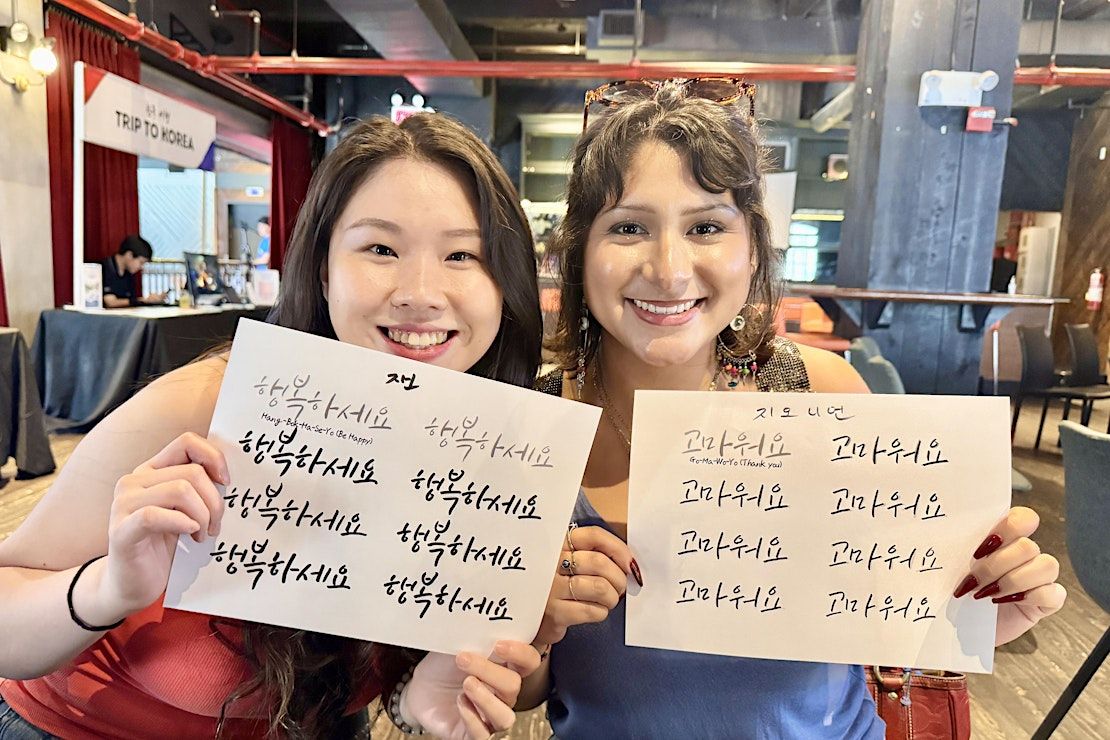 TRIP TO KOREA
행복하세요 행복하세요
Hang-Bok-Ha-Se-Yo (Be Happy)
행복하세요 행복하세요
행복하세요 행복하세요
행복하세요 행복하세요
고마워요 고마워요
Go-Ma-Wo-Yo (Thank you)
고마워요 고마워요
고마워요 고마워요
고마워요 고마워요